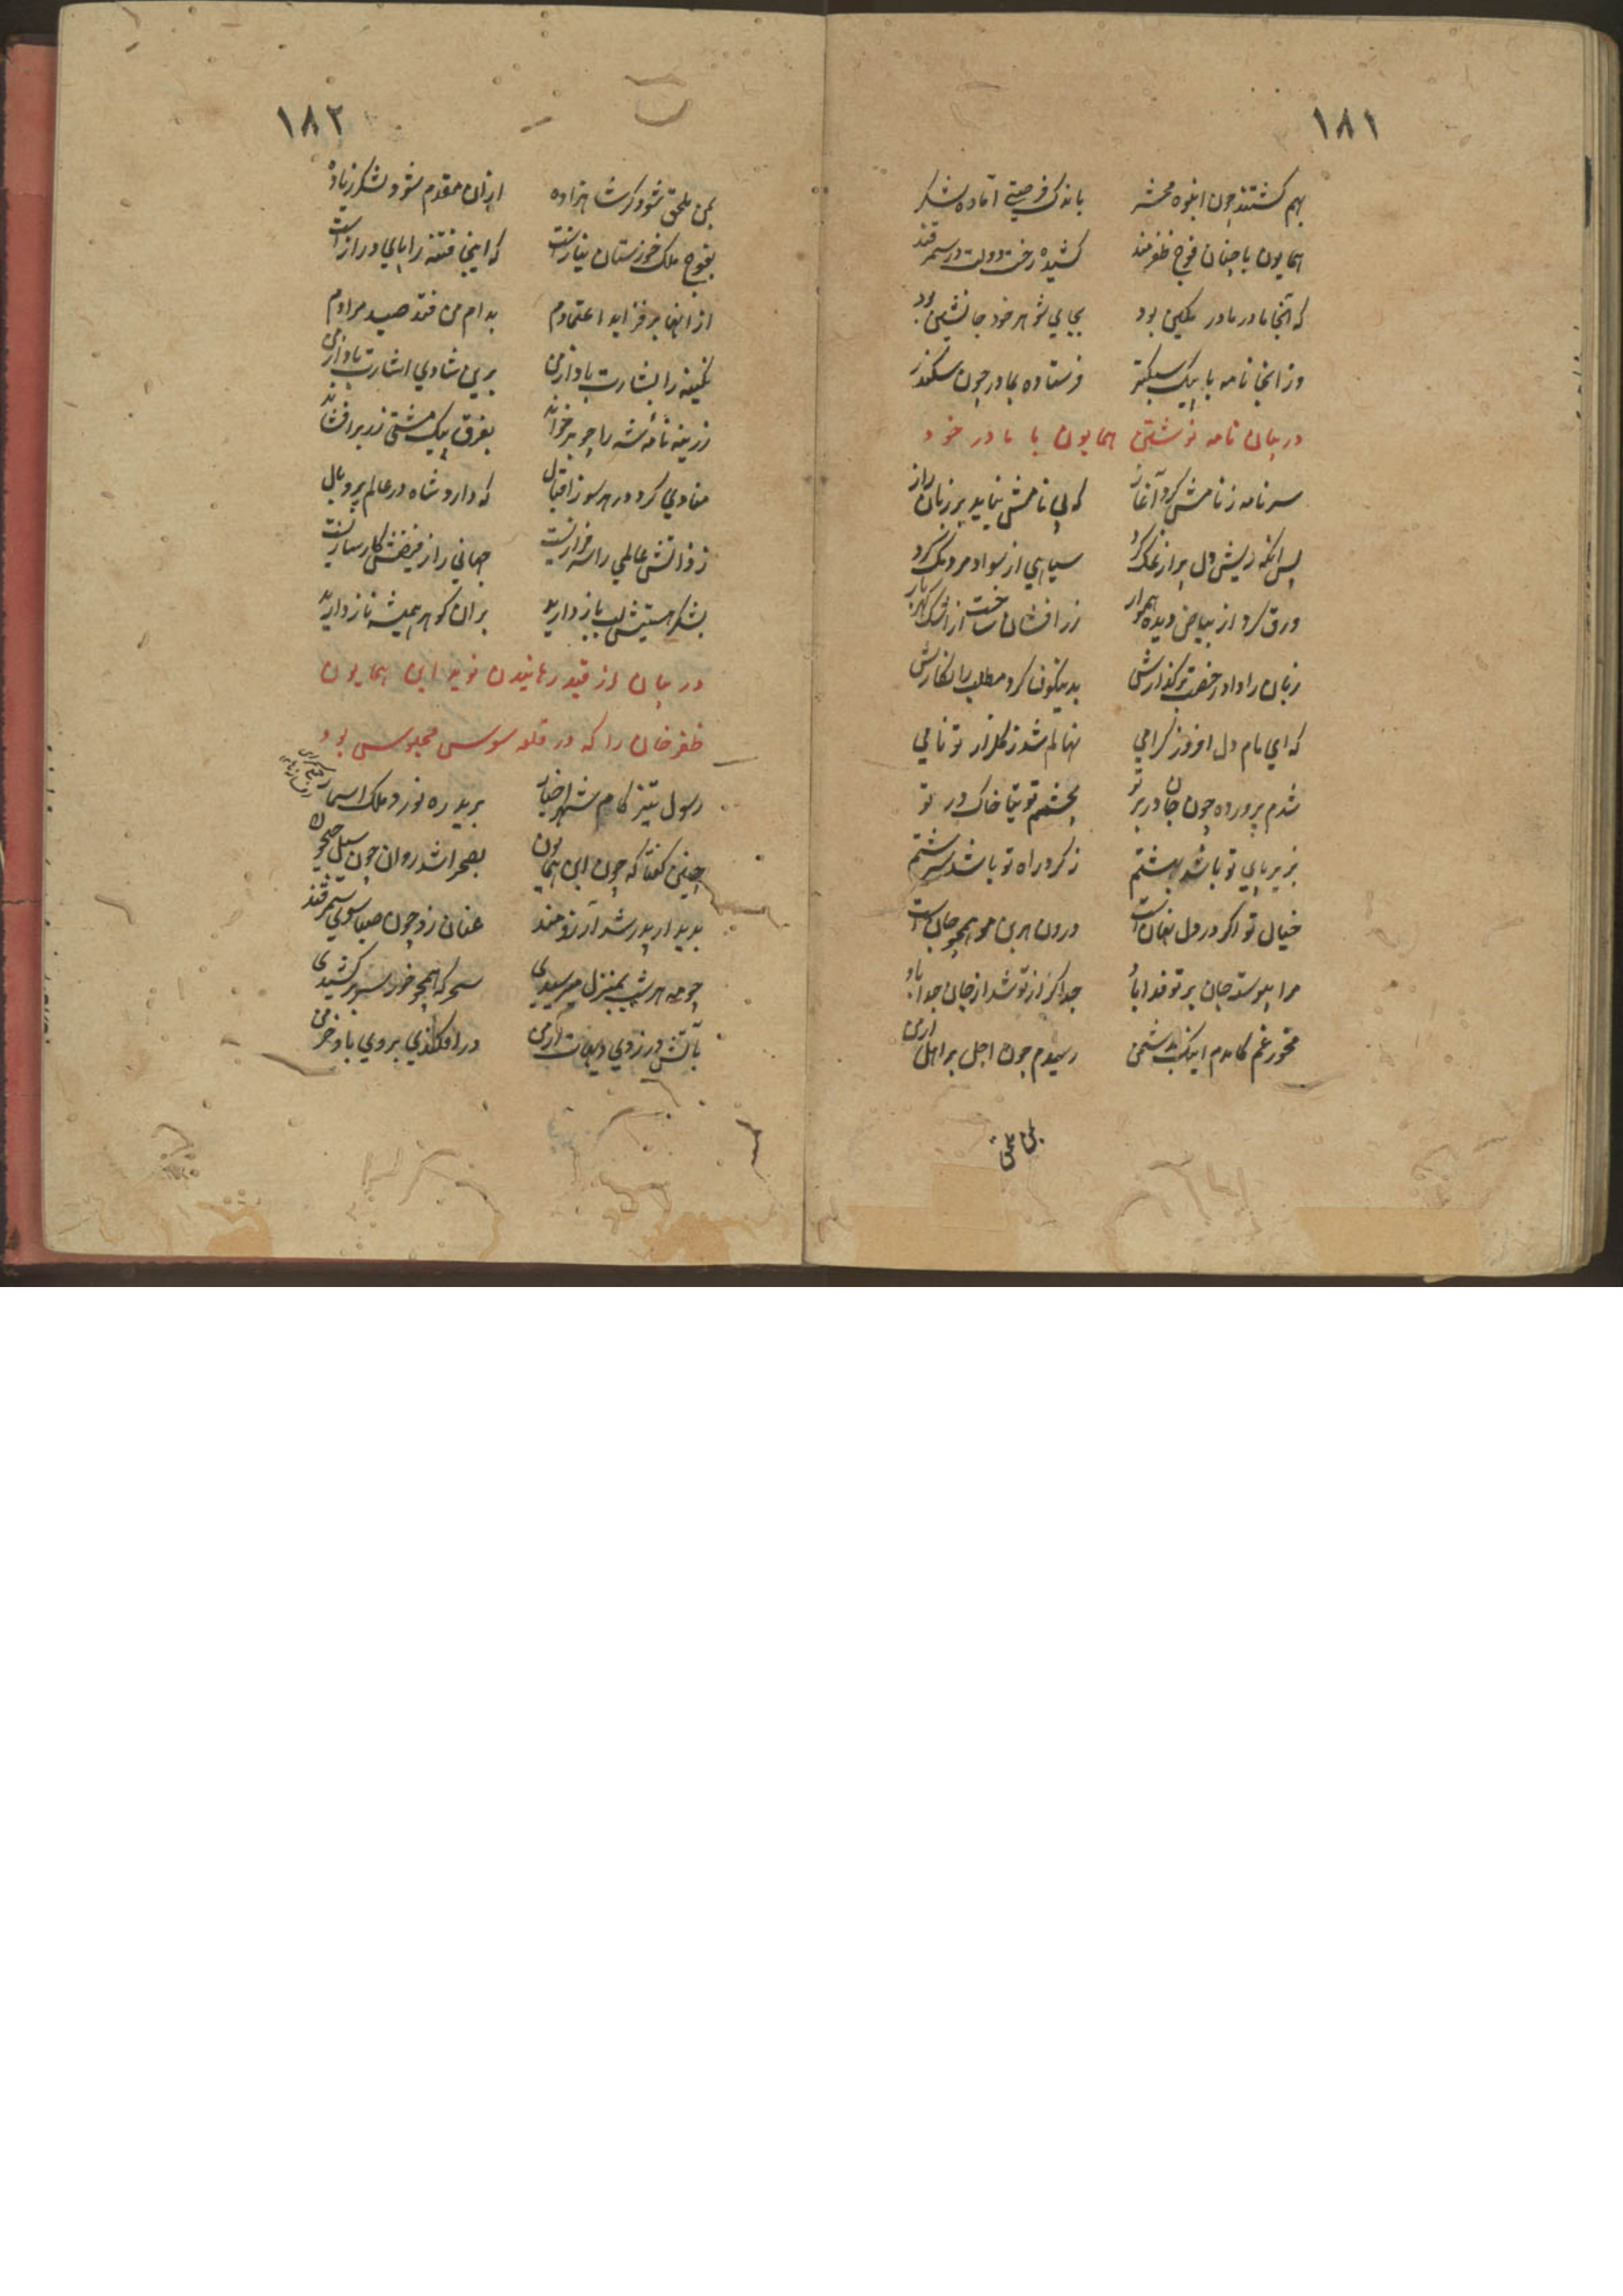 ١٨١
بهم کشتند چون انبوه محشر باندک فرصتی آماده لشکر
همایون با چنان فوج ظفرمند کشیده رخت دولت در سمرقند
که آنجا مادر مادر مکین بود بجای شوهر خود جانشین بود
وز انجا نامه با پیک سبکتر فرستاده بمادر چون سکندر
در بیان نامه نوشتن همایون با مادر خود
سر نامه ز نامش کرد آغاز که بی نامش نیاید بر زبان راز
پس انکه ریش دل پر از نمک کرد سیاهی از سواد مردمک کرد
ورق کرد از بیاض دیده هموار زر افشان ساخت از اشک کهربار
زبان را داد رخصت بر کذارش بدینکونه کرد مطلب را نکارش
که ای مام دل افروز کرامی نهالم شد ز کلزار تو نامی
شدم پرورده چون جان در بر تو بچشمم توتیا خاک در تو
بزیر پای تو باشد بهشتم ز کرد راه تو باشد سرشتم
خیال تو اکر در دل نهان است درون هر بن مو همچو جان است
مرا پیوسته جان بر تو فدا باد جدا کر از تو شد از جان جدا باد
مخور غم کامدم اینک بدشمن رسیدم چون اجل بر اهل ارمن
بمن ملحق
١٨٢
بمن ملحق شود کر شاهزاده ازان مقدم شود لشکر زیاده
بفوج ملک خوزستان نیاز است که اینجا فتنه را پای دراز است
از انها بر فزاید اعتمادم بدام من فتد صید مرادم
نکینه را بشارت باد از من برین شادی اشارت باد از من
زرینه نامهٔ شه را چو بر خواند بفرق پیک مشتی زر بر افشاند
منادی کرد در هر سو ز اقبال که دارد شاه در عالم پر و بال
ز ذاتش عالمی را سرفراز است جهانی را ز فیضش کارساز است
بشکر هستیش لب باز دارید بران کوهر همیشه ناز دارید
در بیان از قید رهانیدن نوید ابن همایون
ظفر خان را که در قلعه سوس محبوس بود
رسول تیز کام شهر اخبار برید ره نورد ملک اسمار
چنین کفتا که چون ابن همایون بصحرا شد روان چون سیل جیحون
بدیدار پدر شد آرزومند عنان زد چون صبا سوی سمرقند
چو مه هر شب بمنزل میرسیدی سحرکه همچو خور سر بر کشیدی
بآتش در زدی دیهات ارمن در افکندی بروی باد خرمن